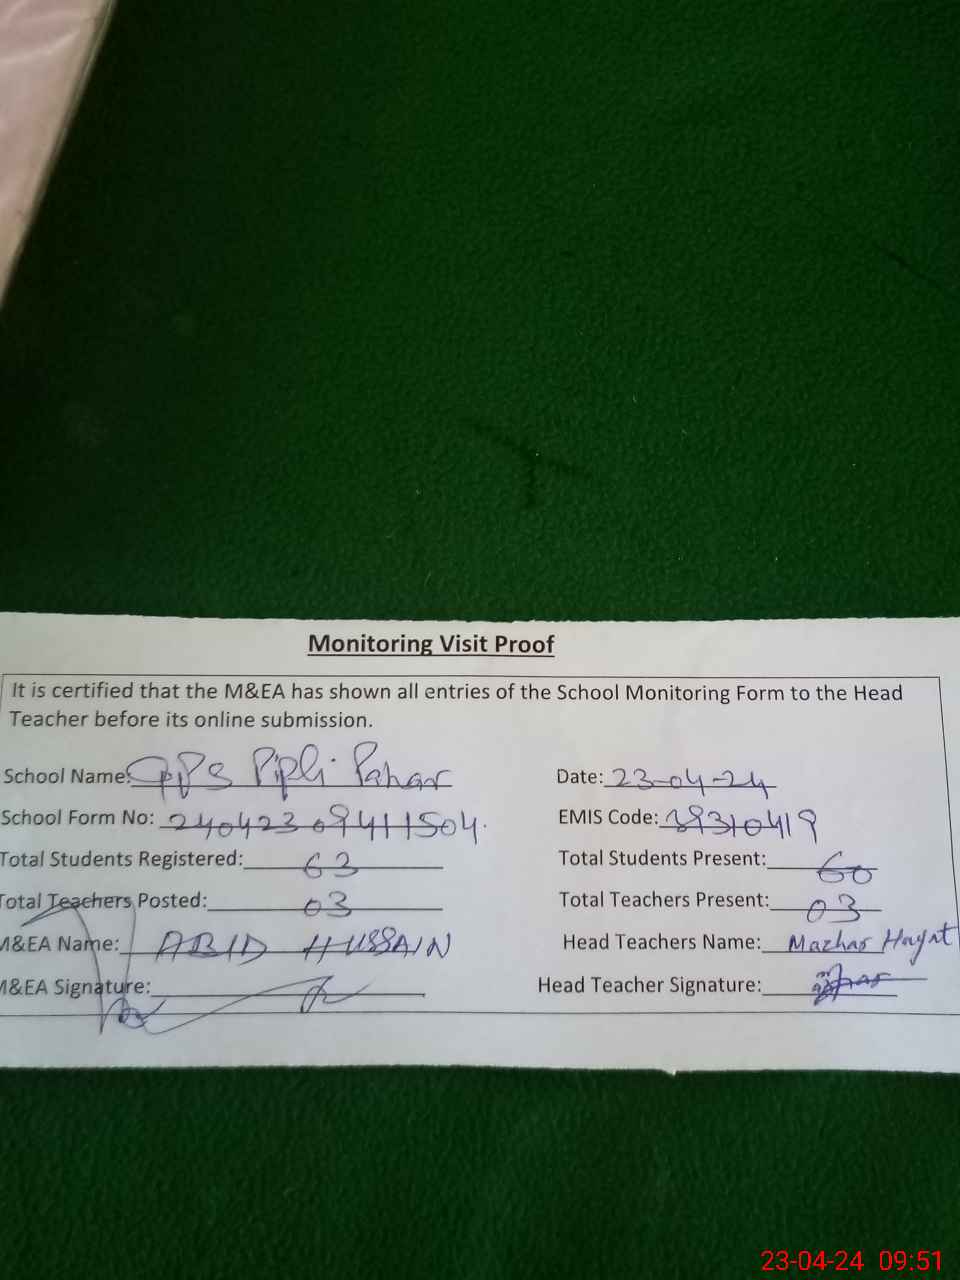 Monitoring Visit Proof
It is certified that the M&EA has shown all entries of the School Monitoring Form to the Head
Teacher before its online submission.
School Name: GPS Pipli Pahar Date: 23-04-24
School Form No: 24042309411504. EMIS Code: 39310419
Total Students Registered: 63 Total Students Present: 60
Total Teachers Posted: 03 Total Teachers Present: 03
M&EA Name: ABID HUSSAIN Head Teachers Name: Mazhar Hayat
M&EA Signature: Head Teacher Signature:
23-04-24 09:51